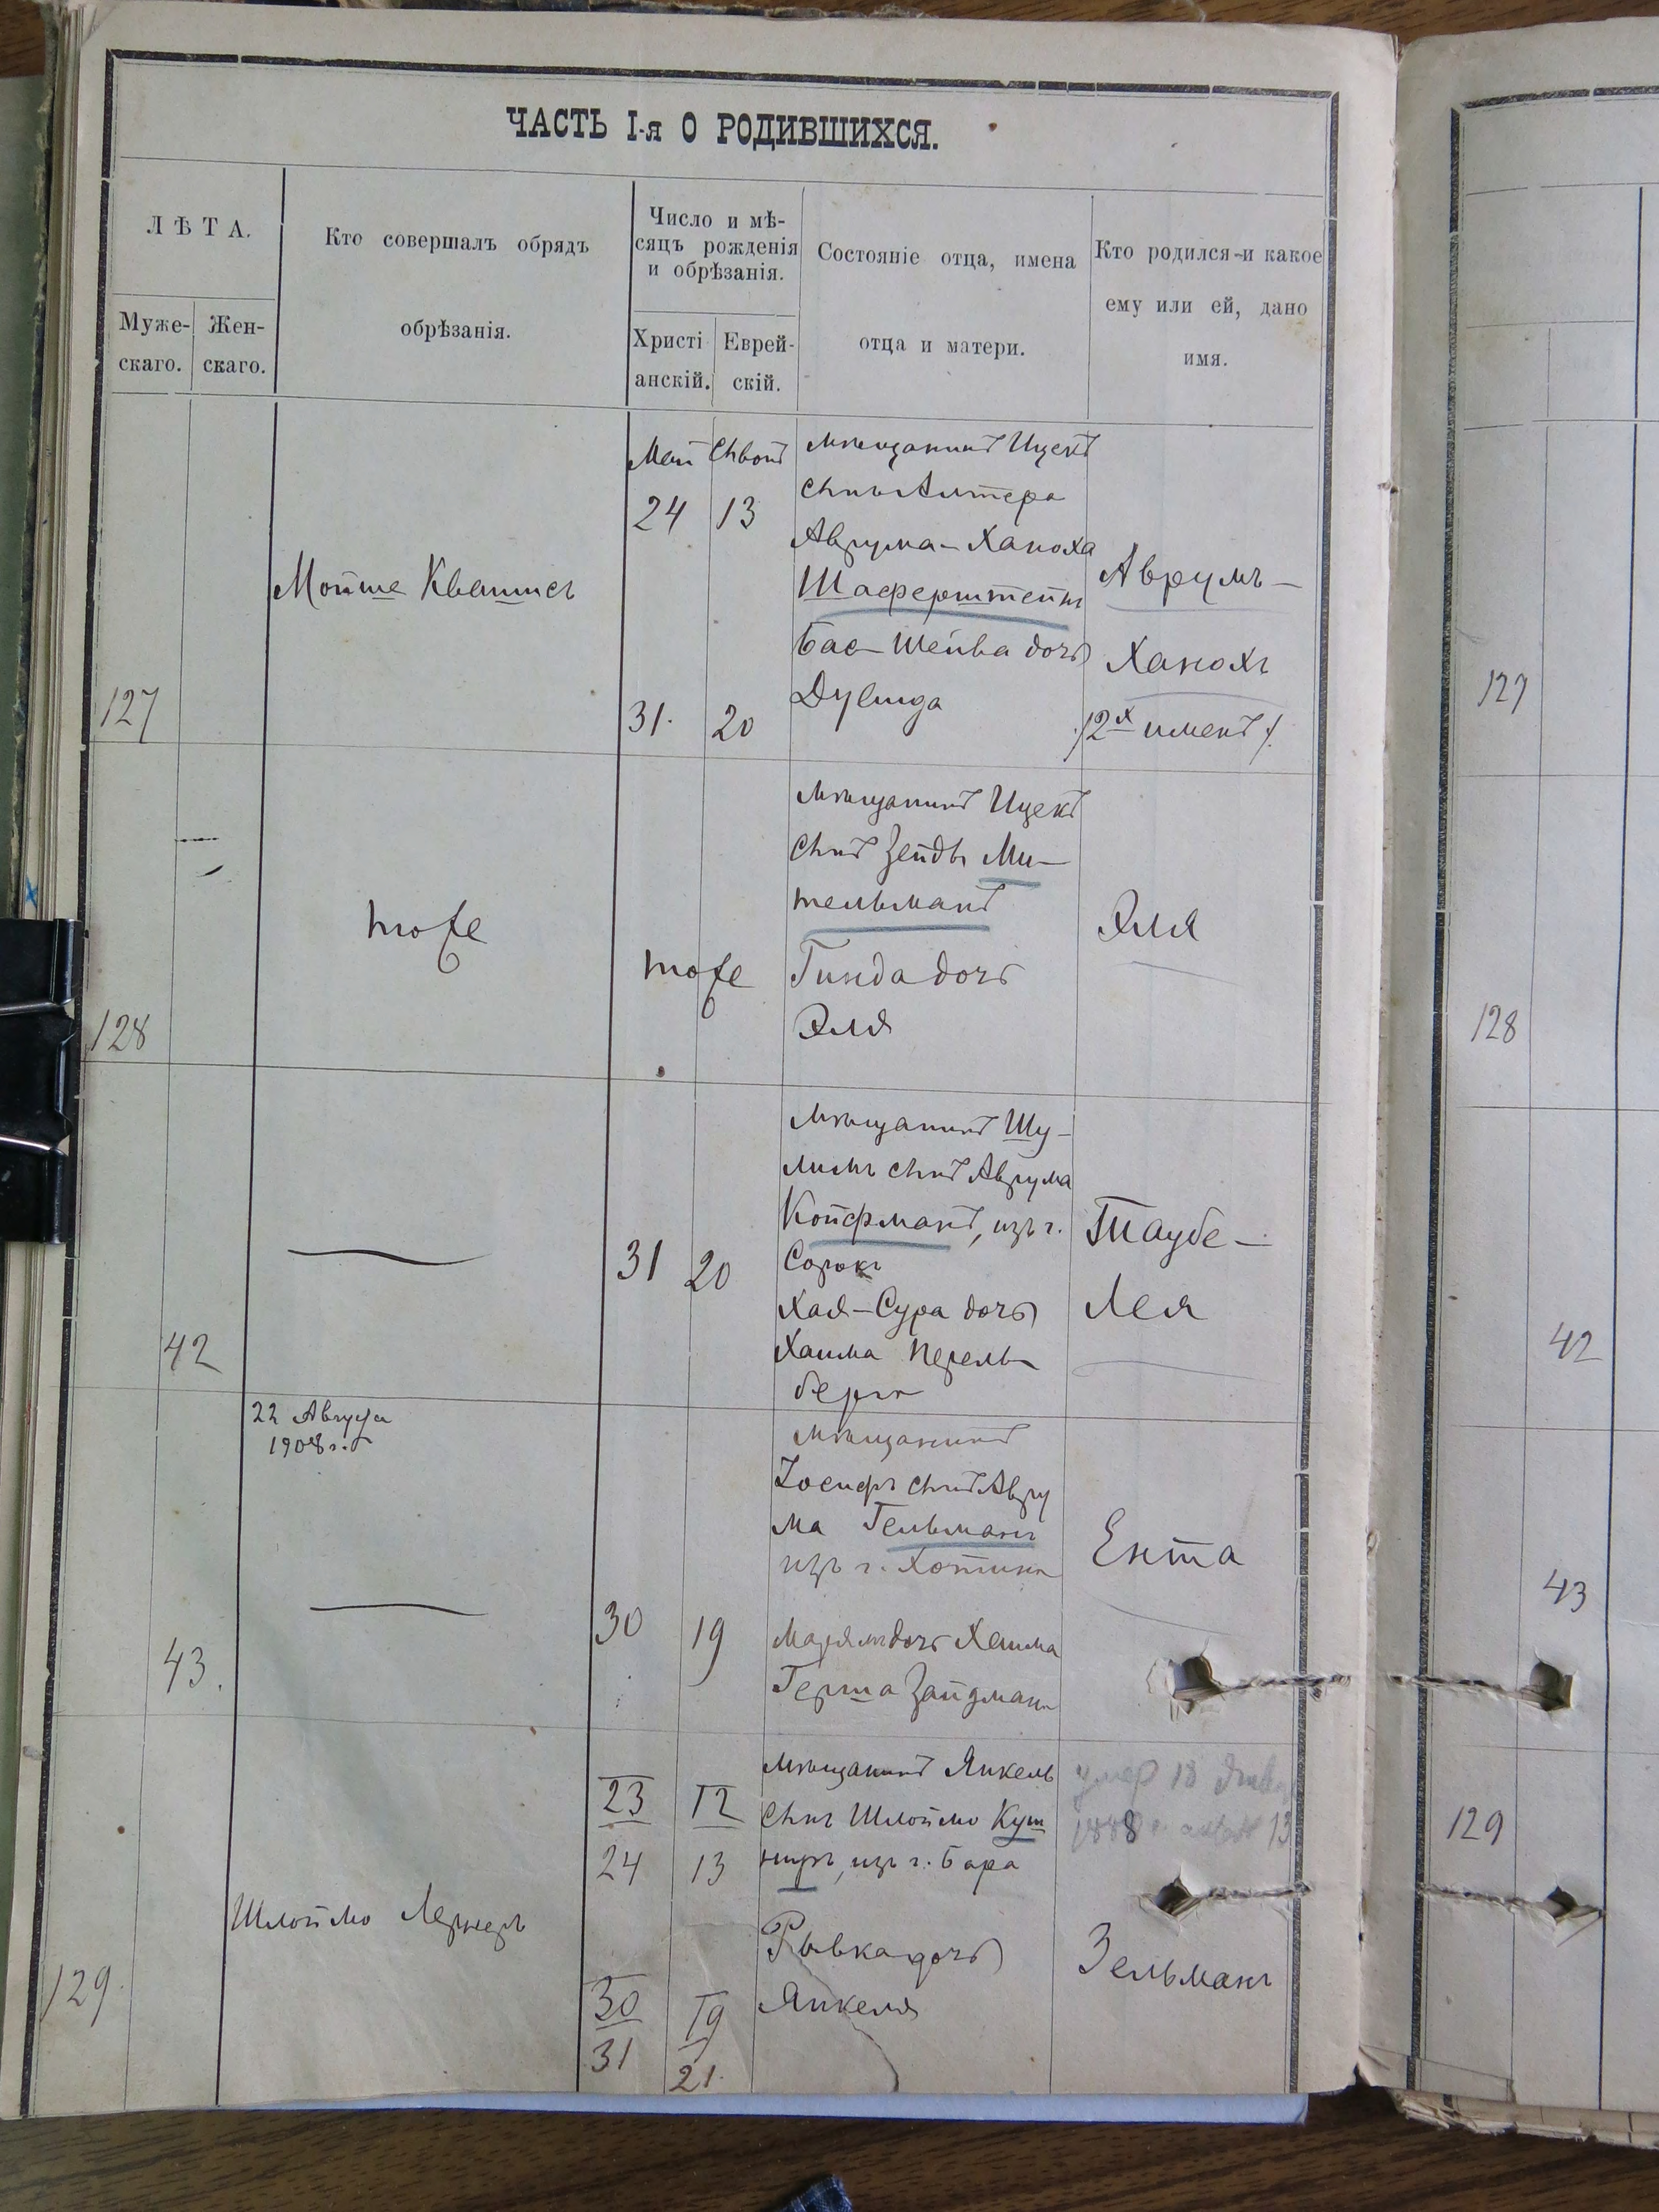 ЧАСТЬ I-я О РОДИВШИХСЯ.
ЛѢТА.
Муже-
скаго.
Жен-
скаго.
Кто совершалъ обрядъ
обрѣзанія.
Число и мѣ-
сяцъ рожденія
и обрѣзанія.
Христі
анскій.
Еврей-
скій.
Состояніе отца, имена
отца и матери.
Кто родился и какое
ему или ей, дано
имя.
127
Мойше
Май
24 13
31. 20
мѣщанинъ Ицекъ
сынъ Алтера
Аврума-Ханоха
Шаферштейнъ
Бас-Шейва дочь
Дувида
Аврумъ-
Ханохъ
/2х именъ/.
128
тоже
тоже
мѣщанинъ Ицекъ
сынъ Зейды Ми-
тельманъ
Гинда дочь
Эля
Эля
42
31 20
мѣщанинъ Шу-
лимъ сынъ Аврума
Койфманъ, изъ г.
Сорокъ
Хая-Сура дочь
Хаима Перель-
берга
Таубе-
Лея
22 Августа
1908 г.
43.
30 19
мѣщанинъ
Іосифъ сынъ Авру
ма Гельманъ
изъ г. Хотина
Марямъ дочь Хаима
Герша Зайдмана
Ента
129.
Шлоймо Лернеръ
23 12
24 13
30 19
31 21.
мѣщанинъ Янкель
сынъ Шлоймо Куш
ниръ, изъ г. Бара
Рывка дочь
Янкеля
умер 18
1888
13
Зельманъ
127
128
42
43
129